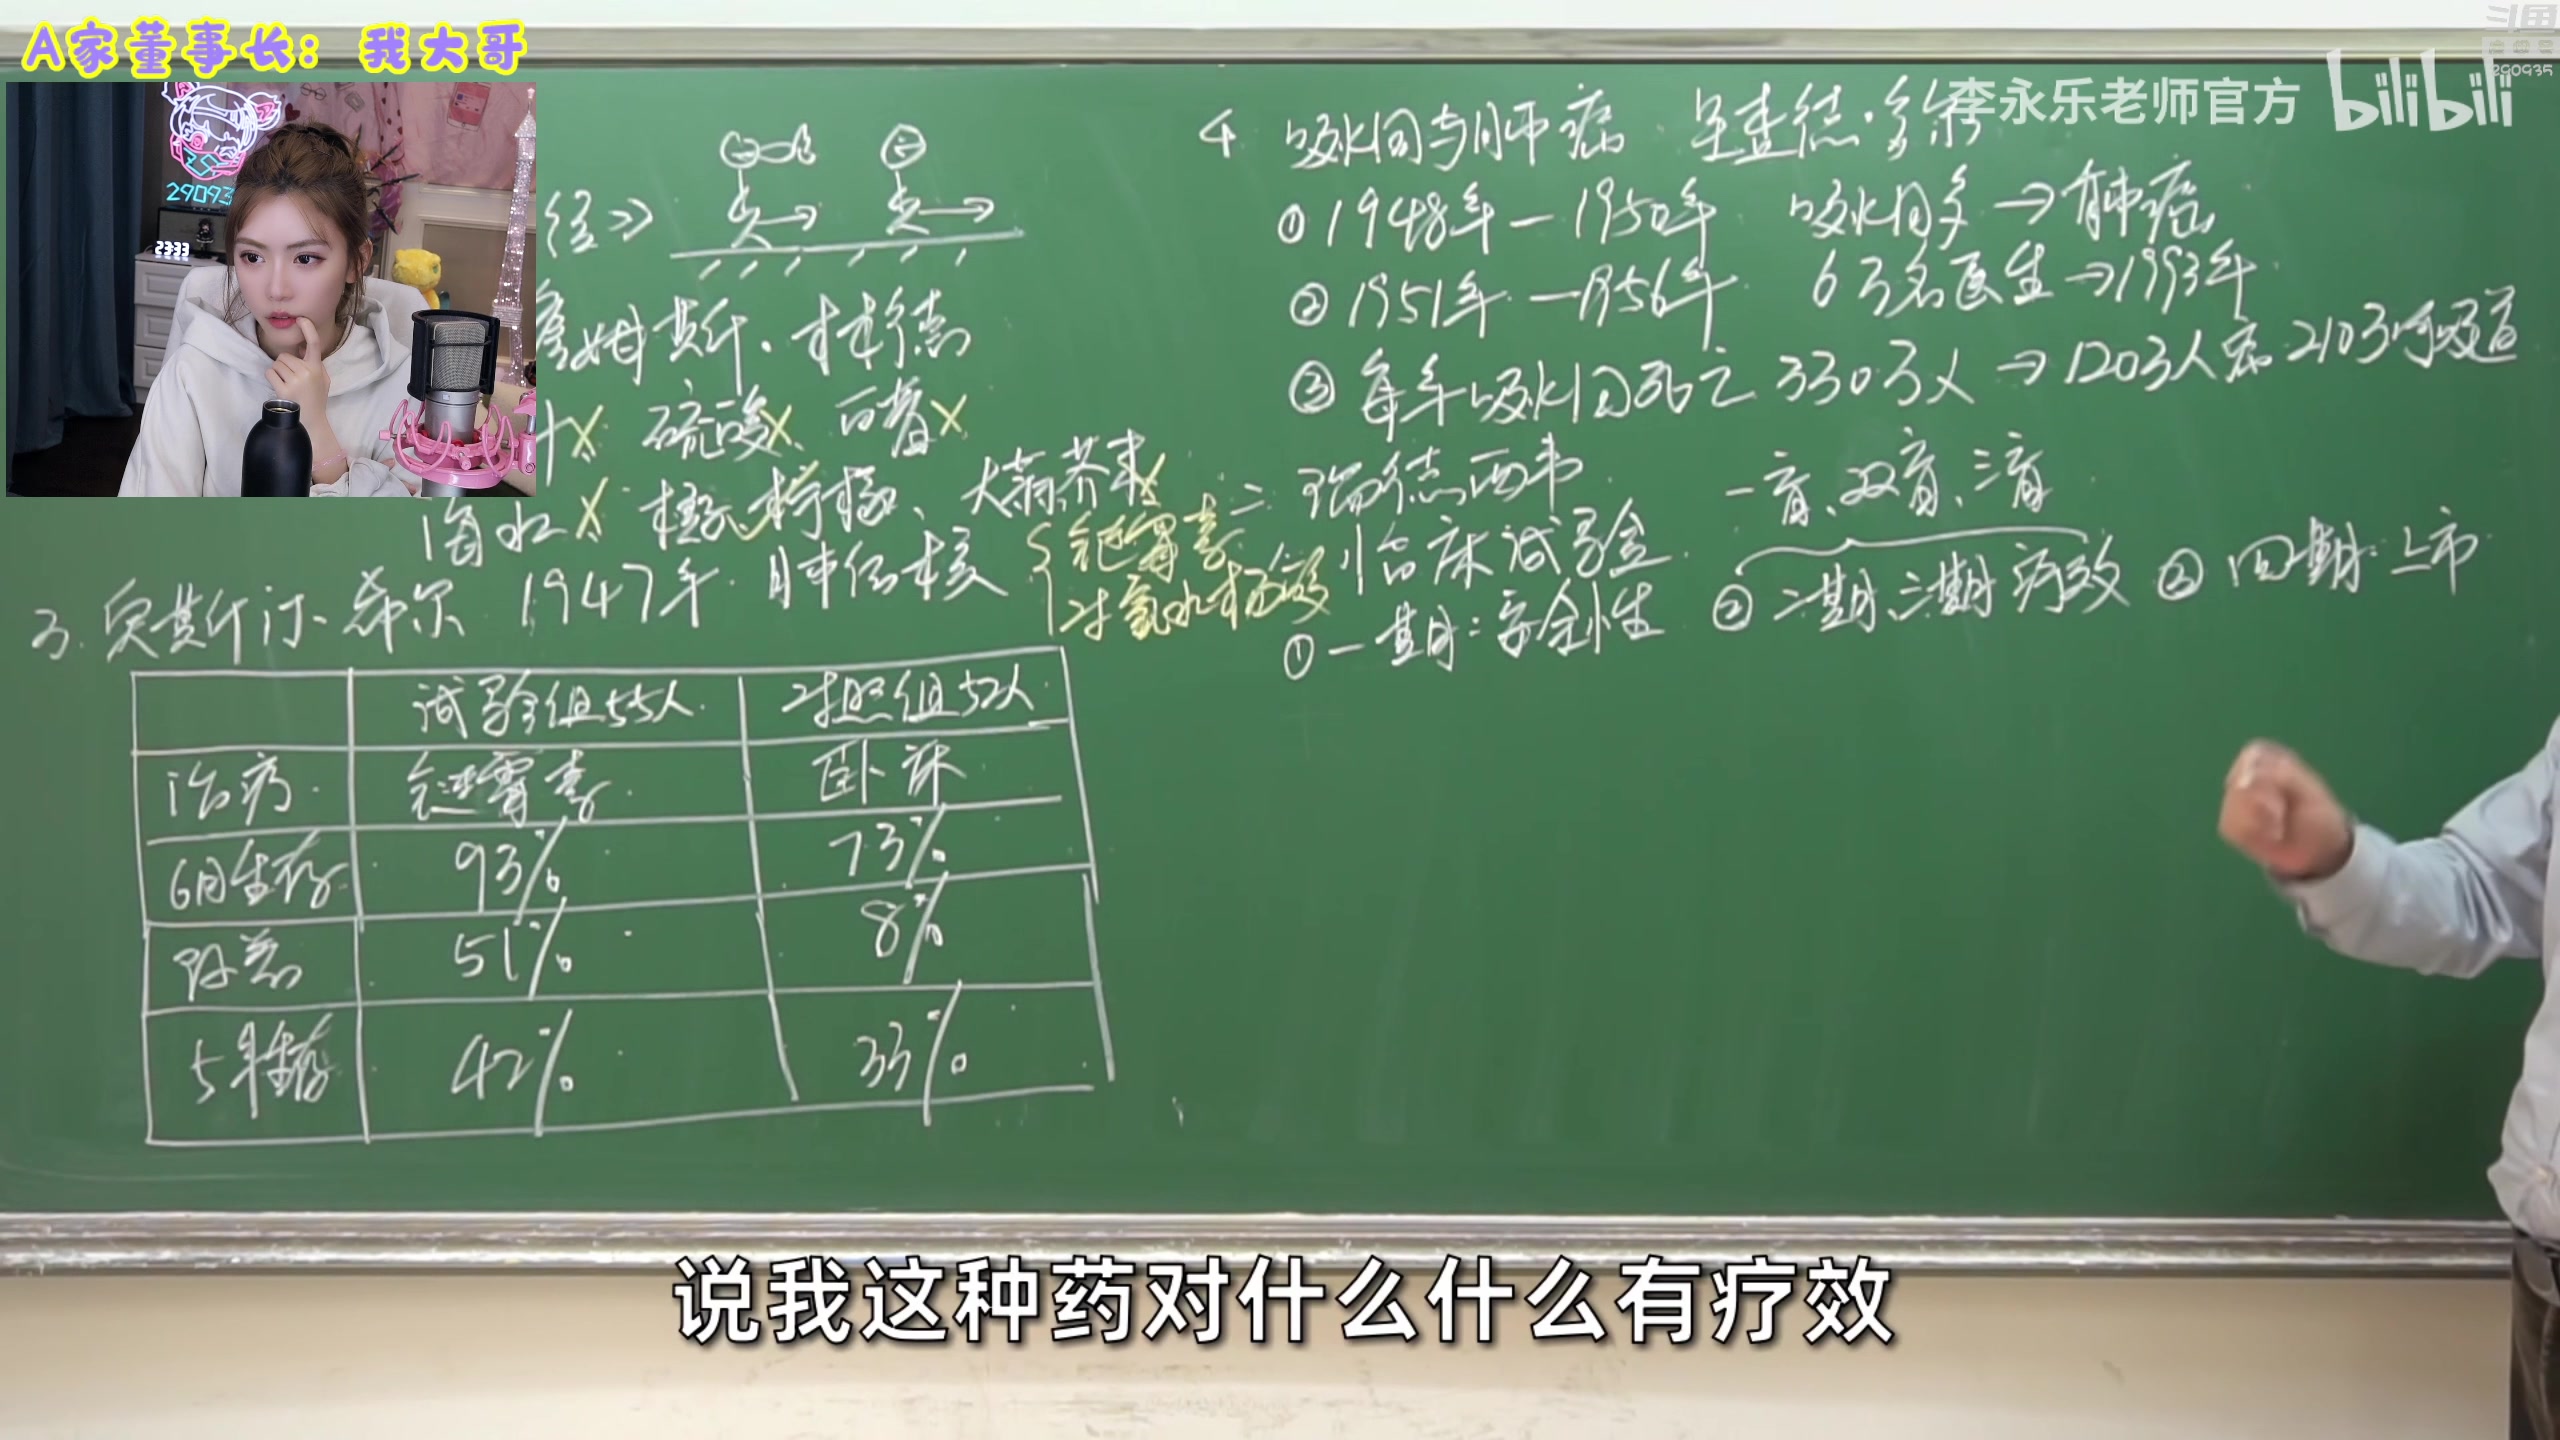 A家董事长：我大哥
斗鱼
290935
李永乐老师官方 bilibili
2333
径》
詹姆斯·林德
X 硫酸X、白醋X
海水X 橙子柠檬、大蒜芥末X
3. 奥斯汀·希尔 1947年 肺结核
{链霉素
对氨水杨酸
试验组55人 对照组52人
治疗 链霉素 卧床
6月生存 93% 73%
改善 51% 8%
5年生存 42% 33%
4 吸烟与肺癌 理查德·多尔
① 1948年—1950年 吸烟多→肺癌
② 1951年—1956年 6万名医生→1993年
③ 每年吸烟死亡330万人→120万人癌 210万呼吸道
二、瑞德西韦
临床试验 一盲、双盲、三盲
①一期：安全性 ②二期、三期 疗效 ③四期：上市
说我这种药对什么什么有疗效